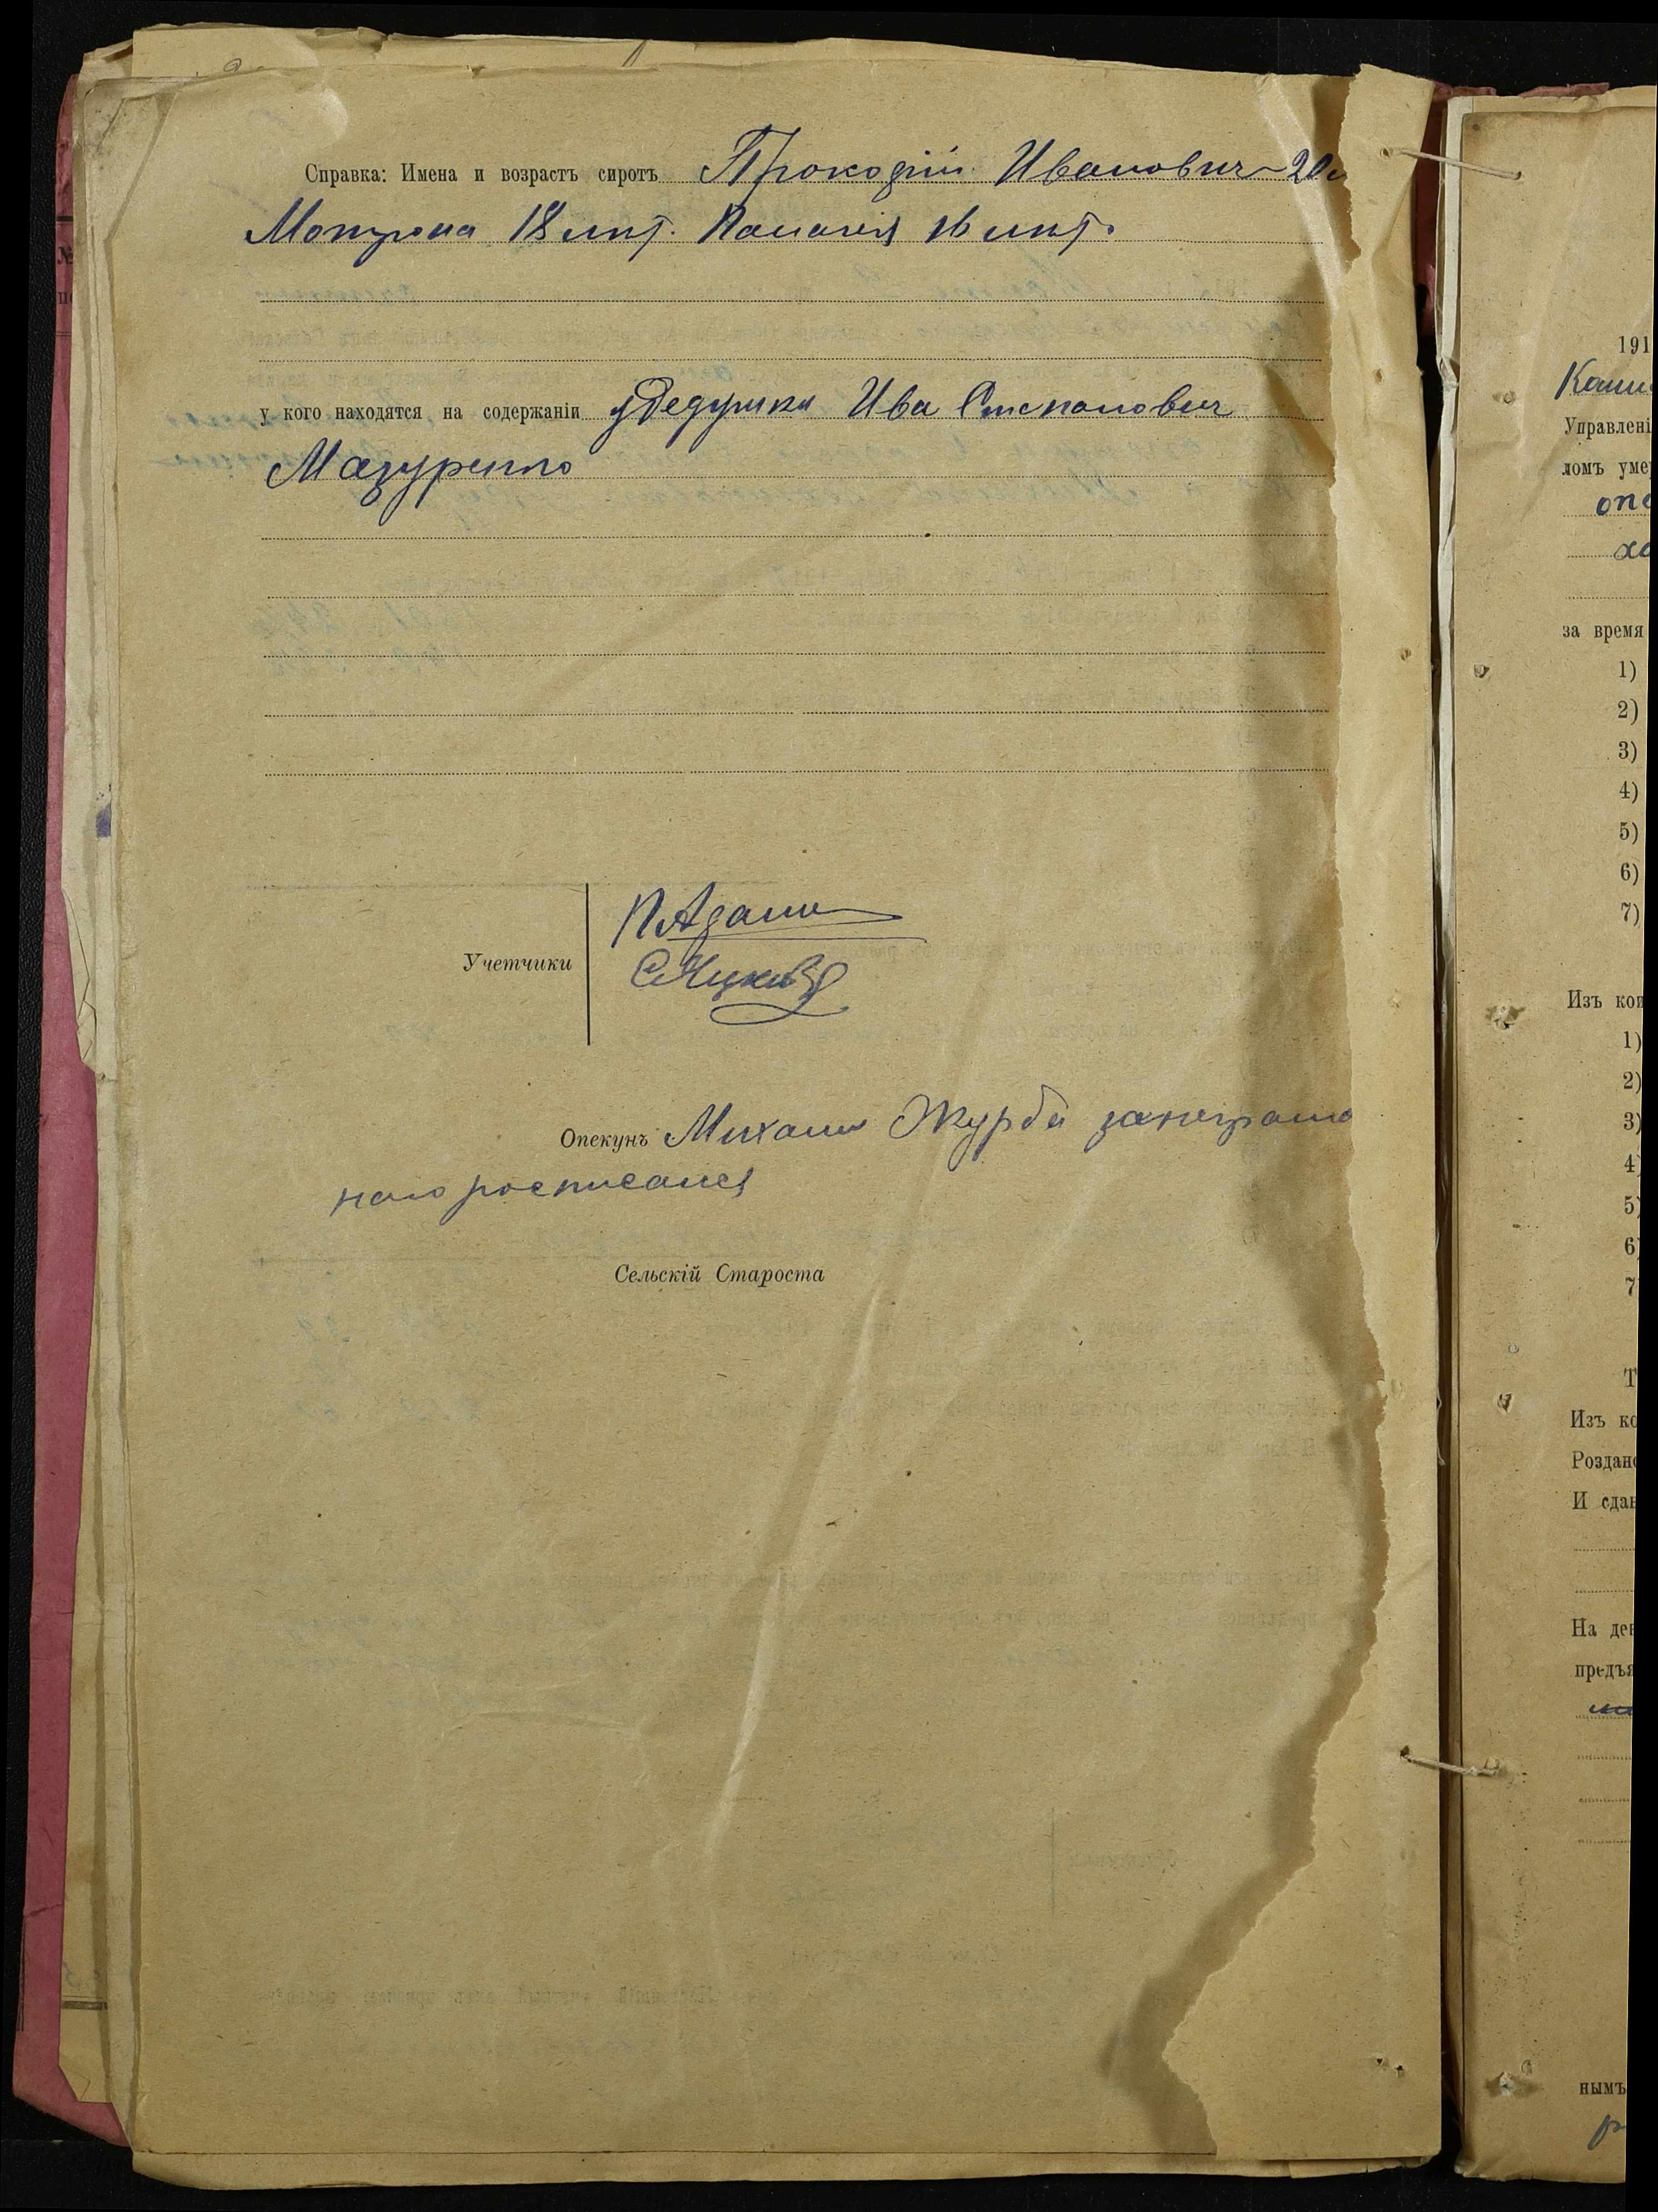 Справка: Имена и возрастъ сиротъ Прокофій Иванович 20 л
Мотрона 18 лит. Палагія 16 лит.
у кого находятся на содержаніи у Дедушки Ива Степанович
Мазуренко
Учетчики
П Адам
Опекунъ Михаил Журба занеграмо
наго росписался
Сельскій Староста
191
Управлені
ломъ уме
опе
за время
1)
2)
3)
4)
5)
6)
7)
Изъ кои
1)
2)
3)
4)
5)
6)
7
Т
Изъ ко
Роздано
И сдан
На ден
предъя
нымъ